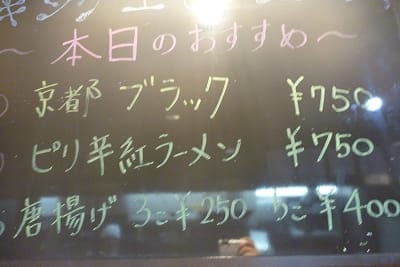 〜本日のおすすめ〜
京都ブラック ¥750
ピリ辛紅ラーメン ¥750
唐揚げ 3こ¥250 5こ¥400